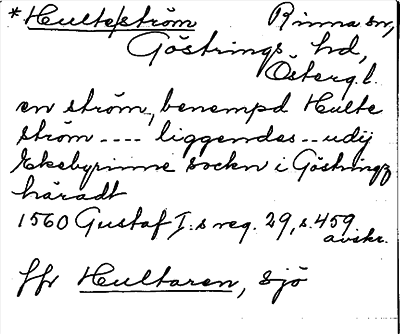 *Hulte/ström Rinna sn,
Göstrings hd,
Österg.l.
en ström, benempd Hulte
ström ---- liggendes -- udij
Ekebyrinne sockn i Göstringz
häradt
1560 Gustaf I:s reg. 29, s. 459
avskr.
jfr Hultaren, sjö